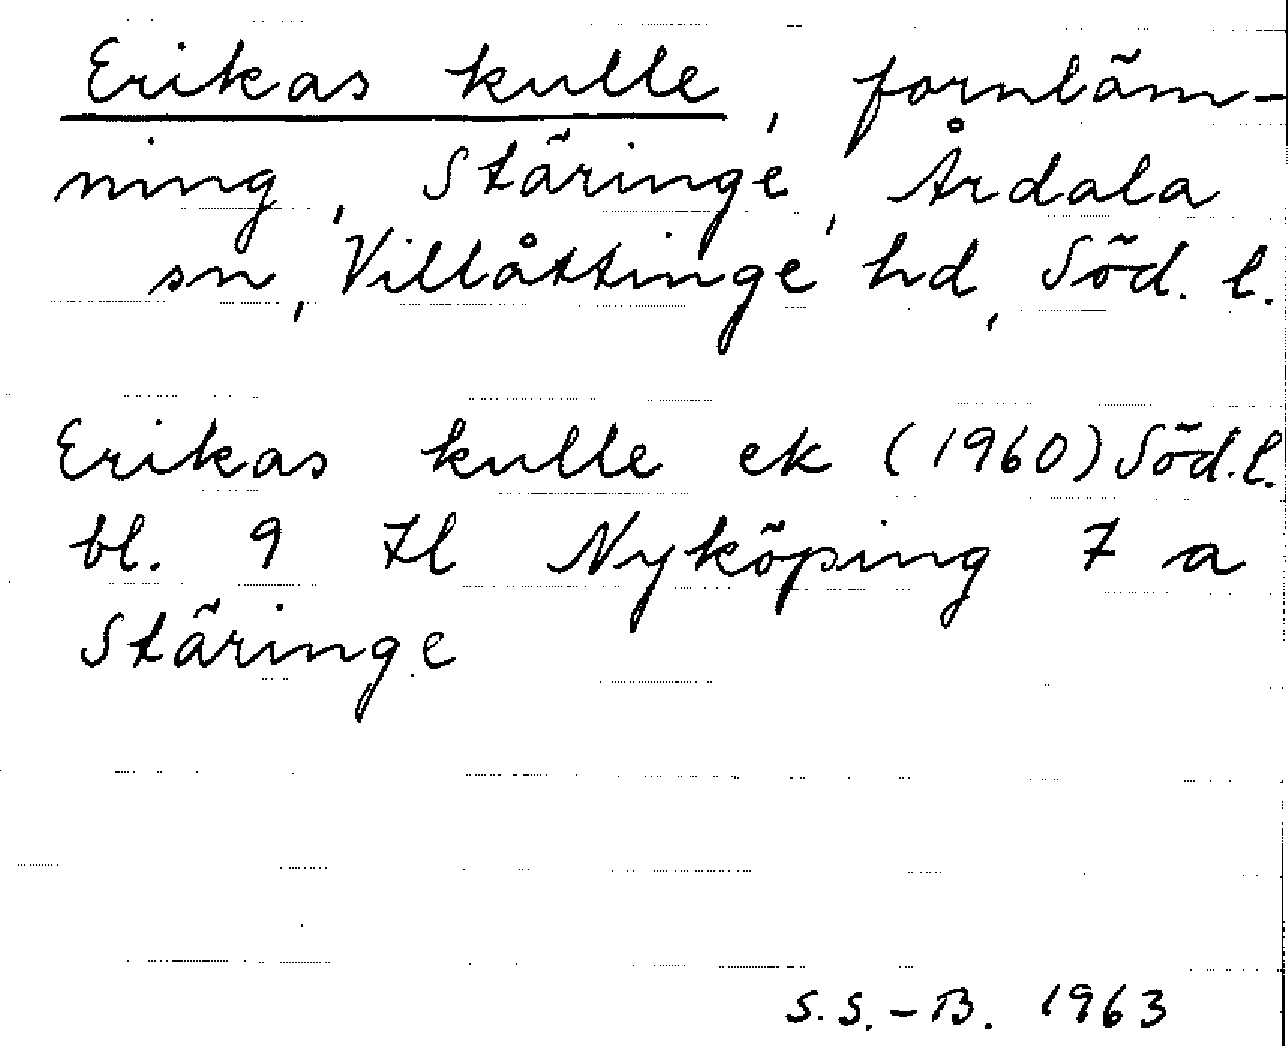 Erikas kulle, fornläm-
ning, Stäringe, Årdala
sn, Villåttinge hd, Söd. l.
Erikas kulle ek (1960) Söd. l.
bl. 9 tl Nyköping 7 a
Stäringe
S.S.-B. 1963